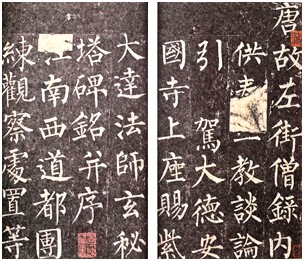 唐故左街僧錄內
供教談論
引駕大德安
國寺上座賜紫
大達法師玄秘
塔碑銘并序
江南西道都團
練觀察處置等